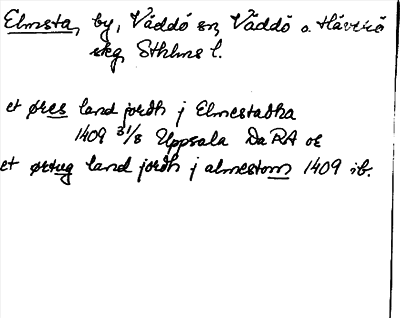 Elmsta, by, Väddö sn, Väddö o. Häverö
skg, Sthlms l.
et øres land jordh j Elmestadha
1409 31/8 Uppsala DaRA oc
et ørtug land jordh j almestom 1409 ib.